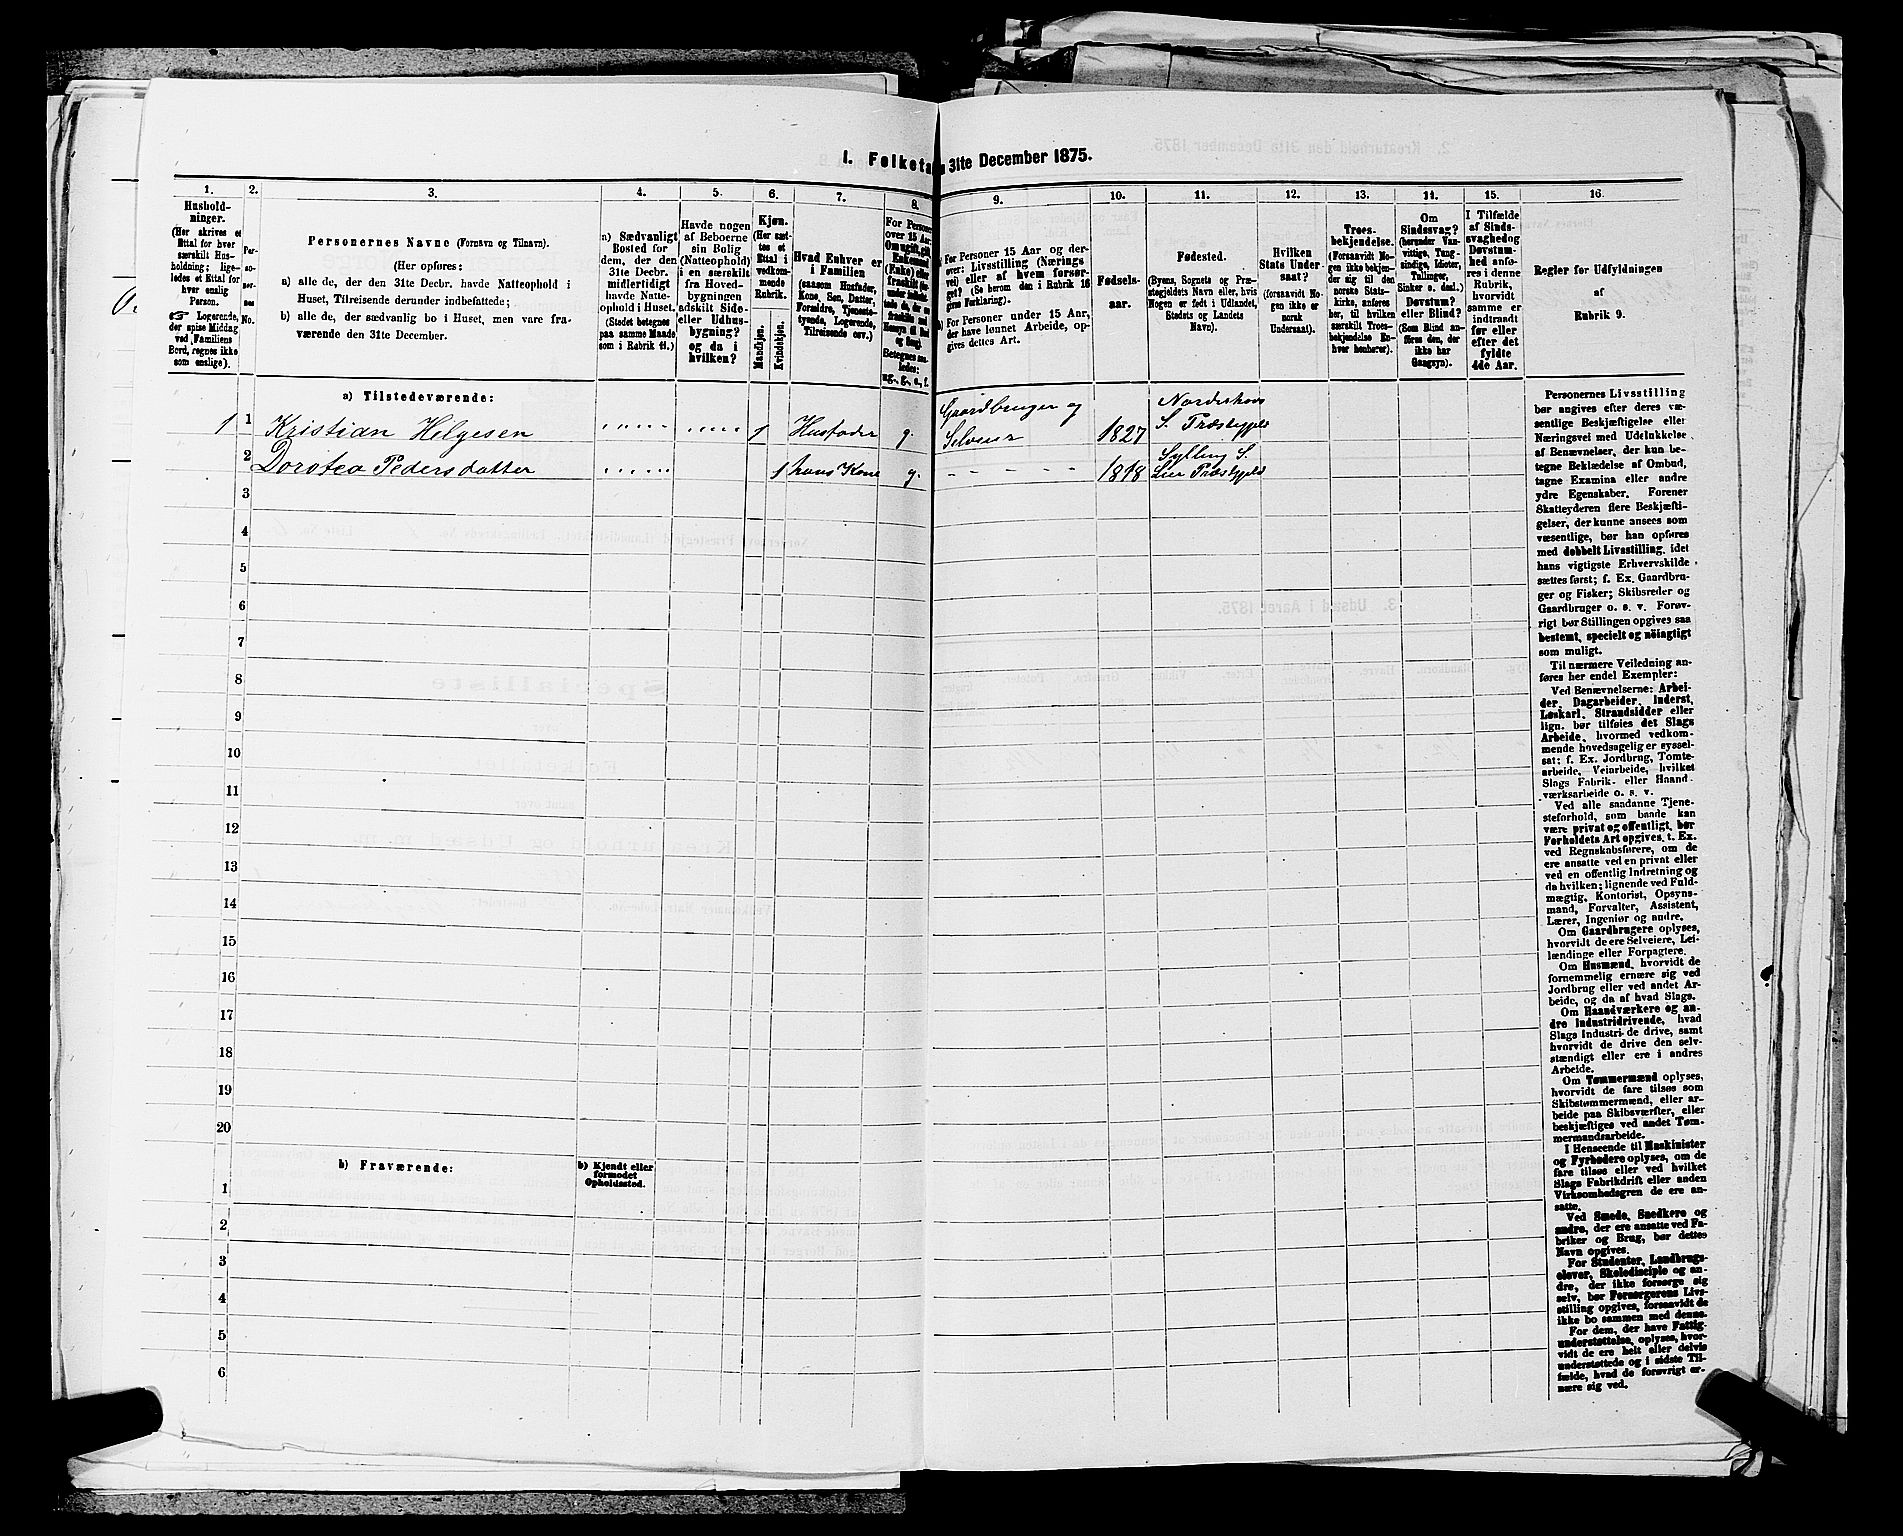 1. Folketa
31te December 1875.
1.
2.
3.
4.
5.
6.
7.
8.
9.
10.
11.
12.
13.
14.
15.
16.
Hushold-
ninger.
(Her skrives et
Ettal for hver
særskilt Hus-
holdning; lige-
ledes et Ettal for
hver enslig
Person.
☞ Logerende,
der spise Middag
ved Familiens
Bord, regnes ikke
som enslige).
Per-
so-
ner-
nes
No.
Personernes Navne (Fornavn og Tilnavn).
(Her opføres:
a) alle de, der den 31te Decbr. havde Natteophold i
Huset, Tilreisende derunder indbefattede;
b) alle de, der sædvanlig bo i Huset, men vare fra-
værende den 31te December.
a) Sædvanligt
Bosted for
dem, der den
31te Decbr.
midlertidigt
havde Natte-
ophold i Huset.
(Stedet betegnes
paa samme Maade
som i Rubrik 11.)
Havde nogen
af Beboerne
sin Bolig
(Natteophold)
i en særskilt
fra Hoved-
bygningen
adskilt Side-
eller Udhus-
bygning?
og da i
hvilken?
Kjøn.
(Her sæt-
tes et
Ettal i
vedkom-
mende
Rubrik.
Mandkjøn.
Kvindekjøn.
Hvad Enhver er
i Familien
(saasom Husfader,
Kone, Søn, Datter,
Forældre, Tjeneste-
tyende, Logerende,
Tilreisende osv.)
For Personer
over 15 Aar:
Om ugift, gift,
Enkemand
(Enke) eller
fraskilt
Betegnes saa-
ledes:
ug., g., e., f.
a) For Personer 15 Aar og der-
over: Livsstilling (Nærings-
vei) eller af hvem forsør-
get? (Se herom den i Rubrik 16
givne Forklaring).
b) For Personer under 15 Aar,
der have lønnet Arbeide, op-
gives dettes Art.
Fødsels-
aar.
Fødested.
(Byens, Sognets og Præ-
stegjeldets Navn eller, hvis
Nogen er født i Udlandet,
Stedets og Landets
Navn).
Hvilken
Stats Under-
saat?
(forsaavidt No-
gen ikke er
norsk
Undersaat).
Troes-
bekjendelse.
(Forsaavidt No-
gen ikke bekjen-
der sig til den
norske Stats-
kirke, anføres
her, til hvilken
særskilt Troes-
bekjendelse En-
hver henhører).
Om
Sindssvag?
(herunder Van-
vittige, Tung-
sindige, Idioter,
Tullinger,
Sinker o. desl.)
Døvstum?
eller Blind?
(Som Blind an-
føres den, der
ikke har
Gangsyn).
I Tilfælde
af Sinds-
svaghed og
Døvstum-
hed anfø-
res i denne
Rubrik,
hvorvidt
samme er
indtraadt
før eller
efter det
fyldte
4de Aar.
Regler for Udfyldningen
af
Rubrik 9.
a) Tilstedeværende:
1 1 Kristian Helgesen 1 Husfader g. Gaardbruger og Selveier 1827 Norderhovs S. Præstegjeld
2 Dorotea Pedersdatter 1 hans Kone g. 1818 Sylling S. Lier Præstegjeld
3
4
5
6
7
8
9
10
11
12
13
14
15
16
17
18
19
20
b) Fraværende:
b) Kjendt eller
formodet
Opholdssted.
1
2
3
4
5
6
Personernes Livsstilling
bør angives efter deres væ-
sentlige Beskjæftigelse eller
Næringsvei med Udelukkelse
af Benævnelser, der kun be-
tegne Beklædelse af Ombud,
tagne Examina eller andre
ydre Egenskaber. Forener
Skatteyderen flere Beskjæfti-
gelser, der kunne ansees som
væsentlige, bør han opføres
med dobbelt Livsstilling, idet
hans vigtigste Erhvervskilde
sættes først; f. Ex. Gaardbru-
ger og Fisker; Skibsreder og
Gaardbruger o. s. v. Forøv-
rigt bør Stillingen opgives saa
bestemt, specielt og nöiagtigt
som muligt.
Til nærmere Veiledning an-
føres her endel Exempler:
Ved Benævnelserne: Arbei-
der, Dagarbeider, Inderst,
Løskarl, Strandsidder eller
lign. bør tilføies det Slags
Arbeide, hvormed vedkom-
mende hovedsagelig er syssel-
sat; f. Ex. Jordbrug, Tomte-
arbeide, Veiarbeide, hvilket
Slags Fabrik- eller Haand-
værksarbeide o. s. v.
Ved alle saadanne Tjene-
steforhold, som baade kan
være privat og offentligt, bør
Forholdets Art opgives, t. Ex.
ved Regnskabsførere, om de
ere ansatte ved en privat eller
ved en offentlig Indretning og
da hvilken; lignende ved Fuld-
mægtig, Kontorist, Opsyns-
mand, Forvalter, Assistent,
Lærer, Ingeniør og andre.
Om Gaardbrugere oplyses,
hvorvidt de ere Selveiere, Lei-
lændinge eller Forpagtere.
Om Husmænd, hvorvidt de
fornemmelig ernære sig ved
Jordbrug eller ved andet Ar-
beide, og da af hvad Slags.
Om Haandværkere og an-
dre Industridrivende, hvad
Slags Industri de drive, samt
hvorvidt de drive den selv-
stændigt eller ere i andres
Arbeide.
Om Tømmermænd oplyses,
hvorvidt de fare tilsøs som
Skibstømmermænd, eller ar-
beide paa Skibsværfter, eller
beskjæftiges ved andet Tøm-
mermandsarbeide.
I Henseende til Maskinister
og Fyrbødere oplyses, om de
fare tilsøs eller ved hvilket
Slags Fabrikdrift eller anden
Virksomhedsgren de ere an-
satte.
Ved Smede, Snedkere og
andre, der ere ansatte ved Fa-
briker og Brug, bør dettes
Navn opgives.
For Studenter, Landbrugs-
elever, Skoledisciple og an-
dre, der ikke forsørge sig
selv, bør Forsørgerens Livs-
stilling opgives, forsaavidt de
ikke bo sammen med denne.
For dem, der have Fattig-
understøttelse, oplyses, hvor-
vidt de ere helt eller delvis
understøttede og i sidste Til-
fælde, hvad de forøvrigt er-
nære sig ved.